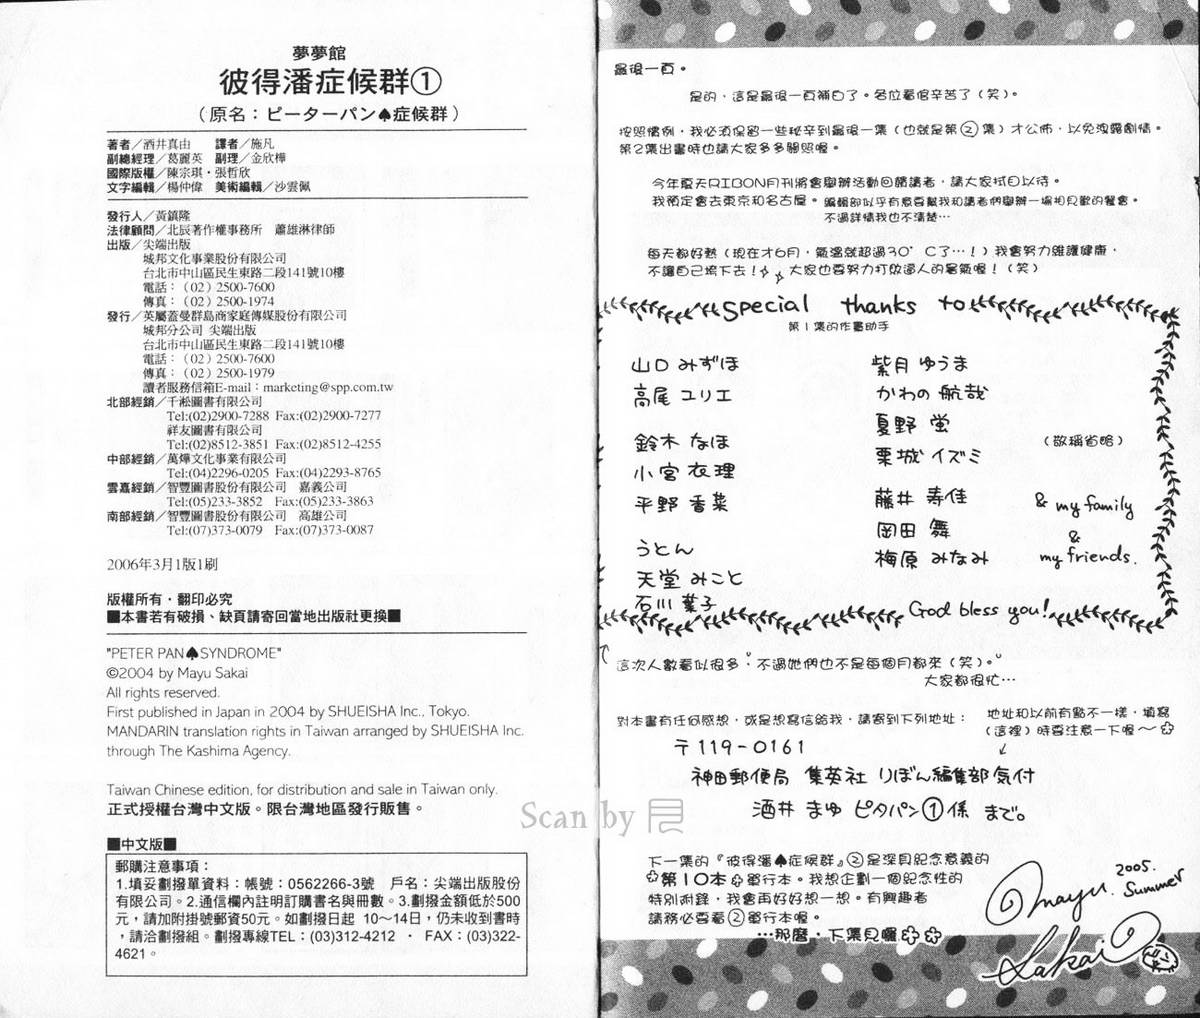 夢夢館
彼得潘症候群①
（原名：ピーターパン♠症候群）
著者／酒井真由　譯者／施凡
副總經理／葛麗英　副理／金欣樺
國際版權／陳宗琪・張哲欣
文字編輯／楊仲偉　美術編輯／沙雲佩
發行人／黃鎮隆
法律顧問／北辰著作權事務所　蕭雄淋律師
出版／尖端出版
城邦文化事業股份有限公司
台北市中山區民生東路二段141號10樓
電話：（02）2500-7600
傳真：（02）2500-1974
發行／英屬蓋曼群島商家庭傳媒股份有限公司
城邦分公司 尖端出版
台北市中山區民生東路二段141號10樓
電話：（02）2500-7600
傳真：（02）2500-1979
讀者服務信箱E-mail：marketing@spp.com.tw
北部經銷／千淞圖書有限公司
Tel:(02)2900-7288 Fax:(02)2900-7277
祥友圖書有限公司
Tel:(02)8512-3851 Fax:(02)8512-4255
中部經銷／萬燁文化事業有限公司
Tel:(04)2296-0205 Fax:(04)2293-8765
雲嘉經銷／智豐圖書股份有限公司　嘉義公司
Tel:(05)233-3852 Fax:(05)233-3863
南部經銷／智豐圖書股份有限公司　高雄公司
Tel:(07)373-0079 Fax:(07)373-0087
2006年3月1版1刷
版權所有・翻印必究
■本書若有破損、缺頁請寄回當地出版社更換■
"PETER PAN♠SYNDROME"
©2004 by Mayu Sakai
All rights reserved.
First published in Japan in 2004 by SHUEISHA Inc., Tokyo.
MANDARIN translation rights in Taiwan arranged by SHUEISHA Inc.
through The Kashima Agency.
Taiwan Chinese edition, for distribution and sale in Taiwan only.
正式授權台灣中文版。限台灣地區發行販售。
■中文版■
郵購注意事項：
1.填妥劃撥單資料：帳號：0562266-3號　戶名：尖端出版股份
有限公司。2.通信欄內註明訂購書名與冊數。3.劃撥金額低於500
元，請加附掛號郵資50元。如劃撥日起 10～14日，仍未收到書時
，請洽劃撥組。劃撥專線TEL：(03)312-4212 ・ FAX：(03)322-
4621。
最後一頁。
是的，這是最後一頁補白了。各位看倌辛苦了（笑）。
按照慣例，我必須保留一些秘辛到最後一集（也就是第②集）才公佈，以免洩露劇情。
第2集出書時也請大家多多關照喔。
今年夏天RIBON月刊將會舉辦活動回饋讀者，請大家拭目以待。
我預定會去東京和名古屋。編輯部似乎有意要幫我和讀者們舉辦一場相見歡的餐會。
不過詳情我也不清楚…
每天都好熱（現在才6月，氣溫就超過30°C了…！）我會努力維護健康，
不讓自己垮下去！大家也要努力打敗逼人的暑氣喔！（笑）
Special thanks to
第1集的作畫助手
山口 みずほ
高尾 ユリエ
鈴木 なほ
小宮 衣理
平野 香菜
うとん
天堂 みこと
石川 葉子
紫月 ゆうま
かわの 航哉
夏野 蛍
栗城 イズミ
藤井 寿佳
岡田 舞
梅原 みなみ
（敬稱省略）
& my family
&
my friends.
God bless you!
這次人數看似很多，不過她們也不是每個月都來（笑）。
大家都很忙…
對本書有任何感想，或是想寫信給我，請寄到下列地址：
地址和以前有點不一樣，填寫
（這裡）時要注意一下喔～
〒119-0161
神田郵便局 集英社 りぼん編集部気付
酒井 まゆ ピタパン①係 まで。
Scan by
下一集的『彼得潘♠症候群』②是深具紀念意義的
第10本單行本。我想企劃一個紀念性的
特別附錄，我會再好好想一想。有興趣者
請務必要看②單行本喔。
…那麼，下集見囉
2005.
Summer
Mayu
Sakai